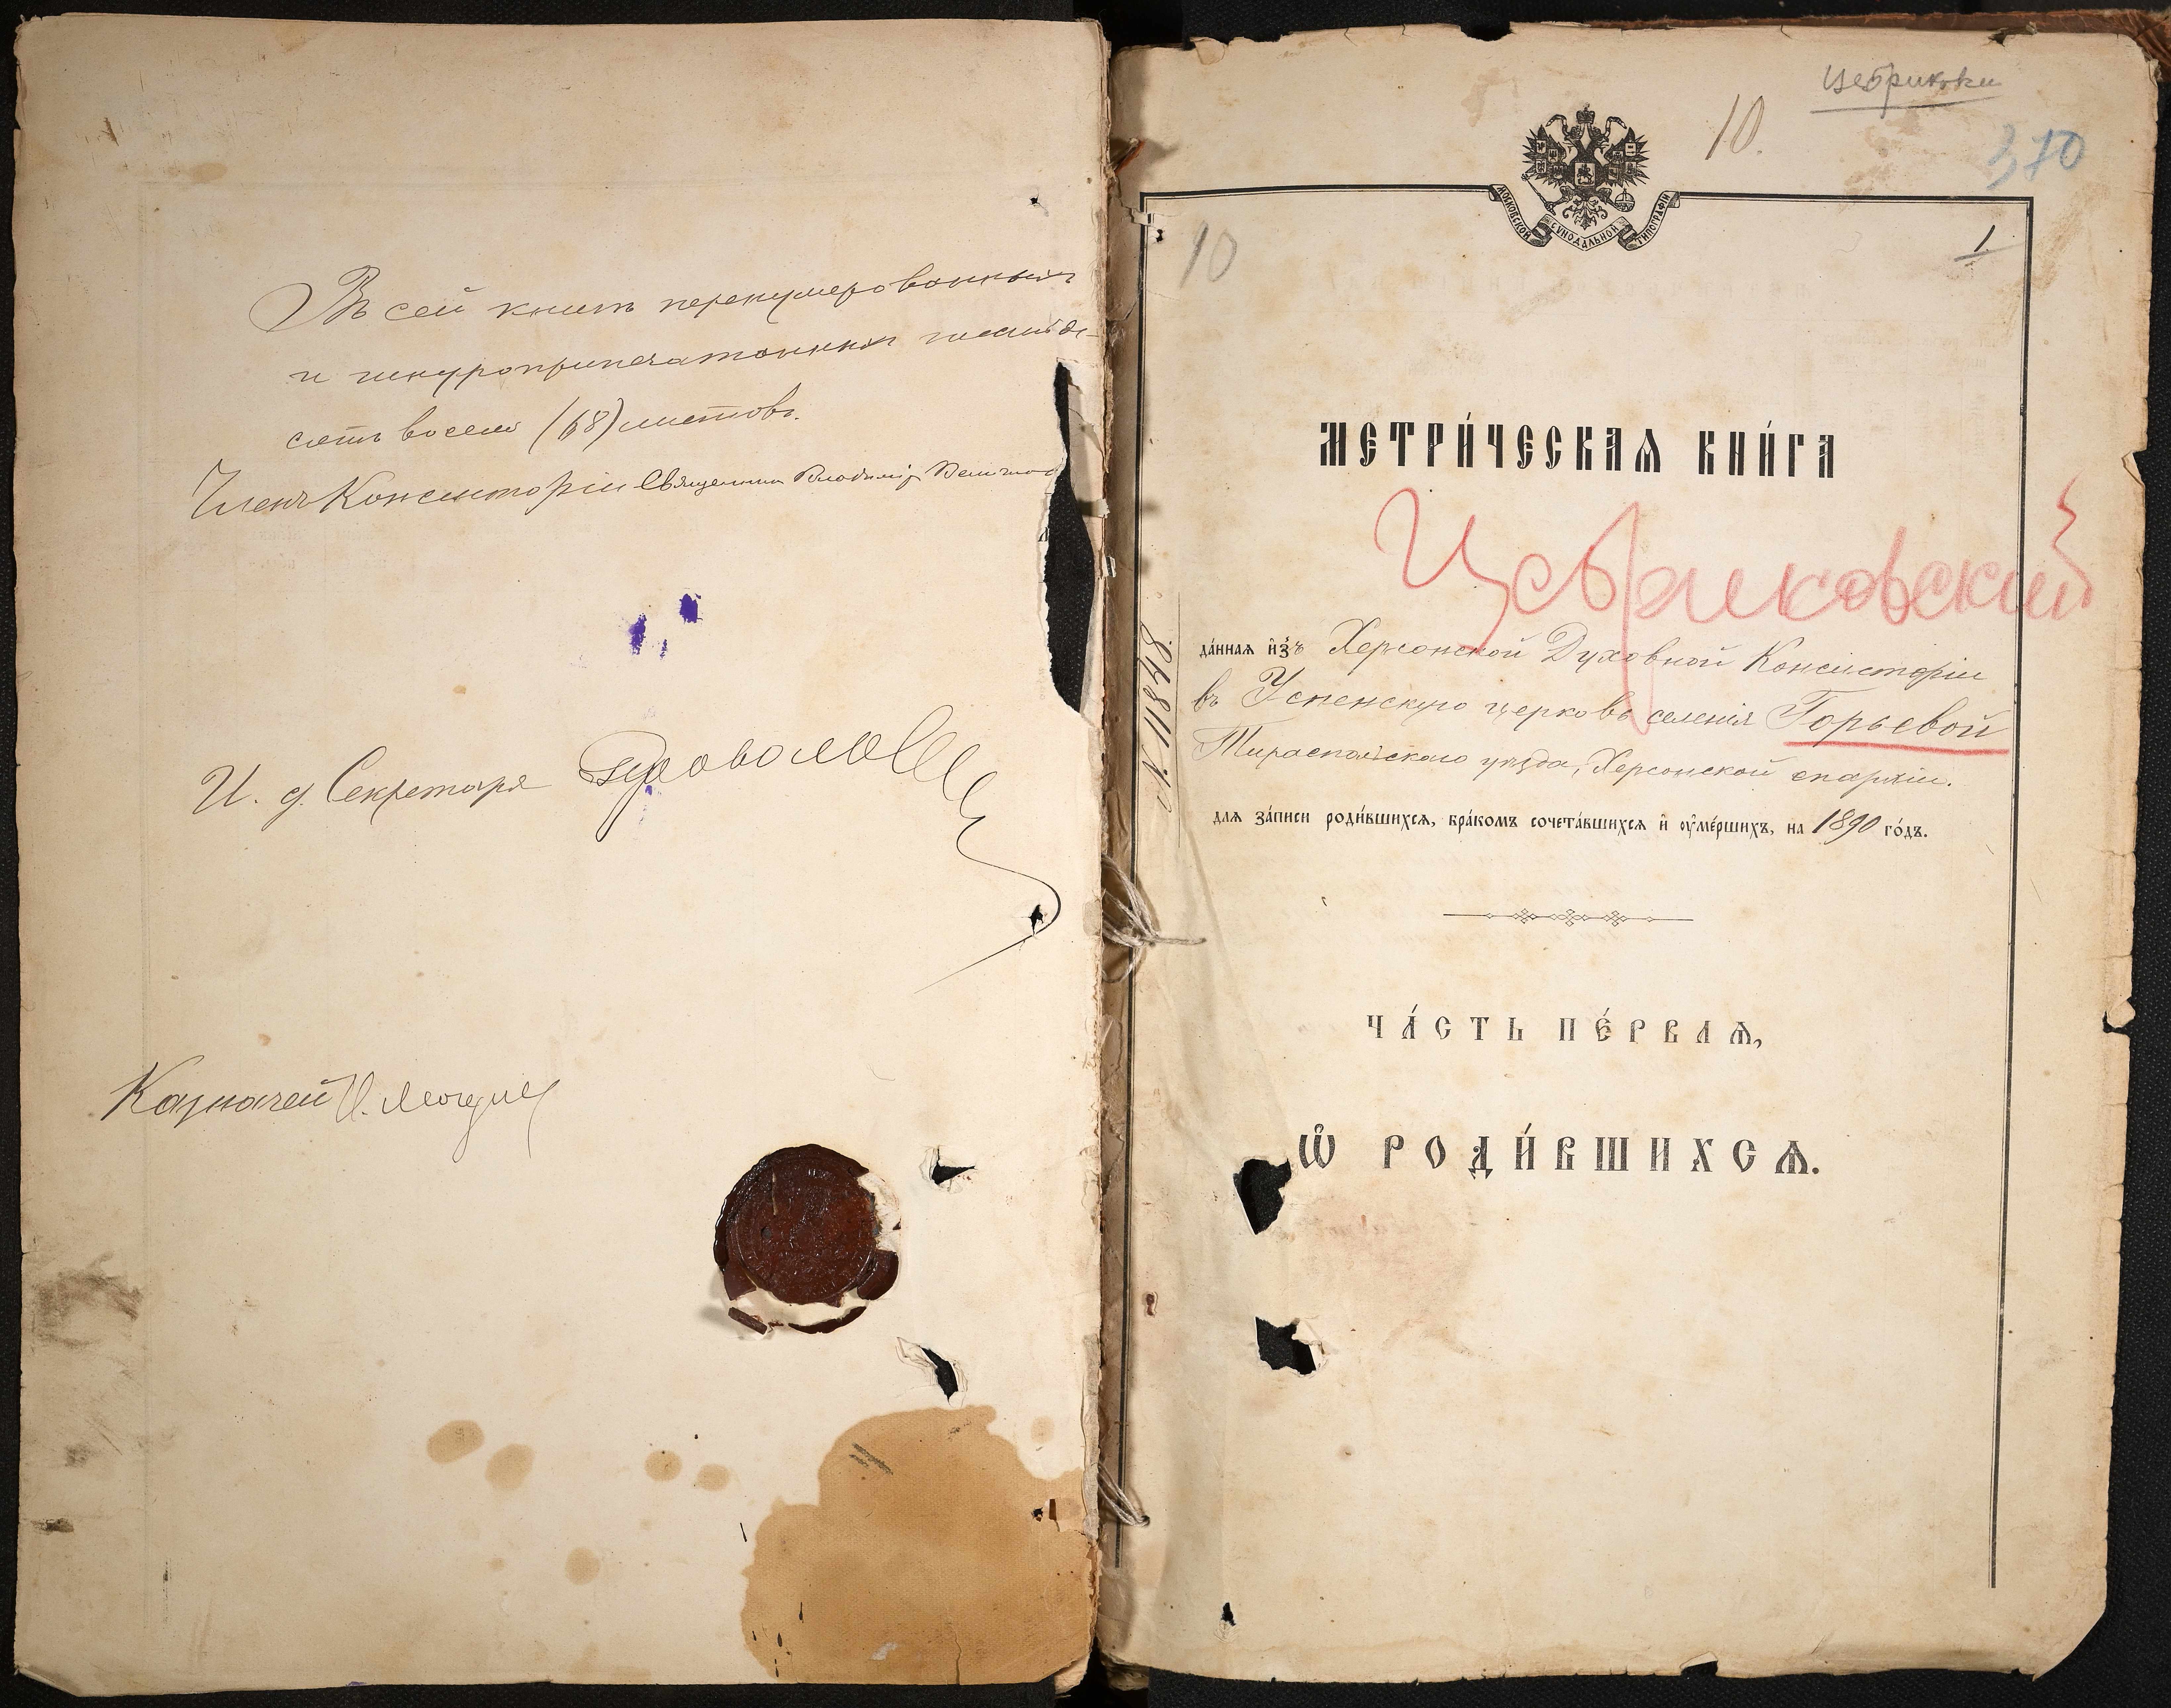 Въ сей книгѣ перенумерованныхъ
и шнуроприпечатанныхъ шестьде-
сятъ восемь (68) листовъ.
Членъ Консисторіи Священникъ Владиміръ
И. д. Секретаря
Казначей
Цебриковки
10.
370
МОСКОВСКОЙ СѴНОДАЛЬНОЙ ТИПОГРАФІИ
10
1
МЕТРИ́ЧЕСКАѦ КНИ́ГА
Цебриковский
№ 11848.
да́ннаѧ и҆́зъ Херсонской Духовной Консисторіи
въ Успенскую церковь селенія Горьевой
Тираспольскаго уѣзда, Херсонской епархіи.
длѧ за́писи роди́вшихсѧ, бра́комъ сочета́вшихсѧ и҆ ᲂу҆ме́ршихъ, на 1890 го́дъ.
ЧА́СТЬ ПЕ́РВАѦ,
Ѡ҆ РОДИ́ВШИХСѦ.